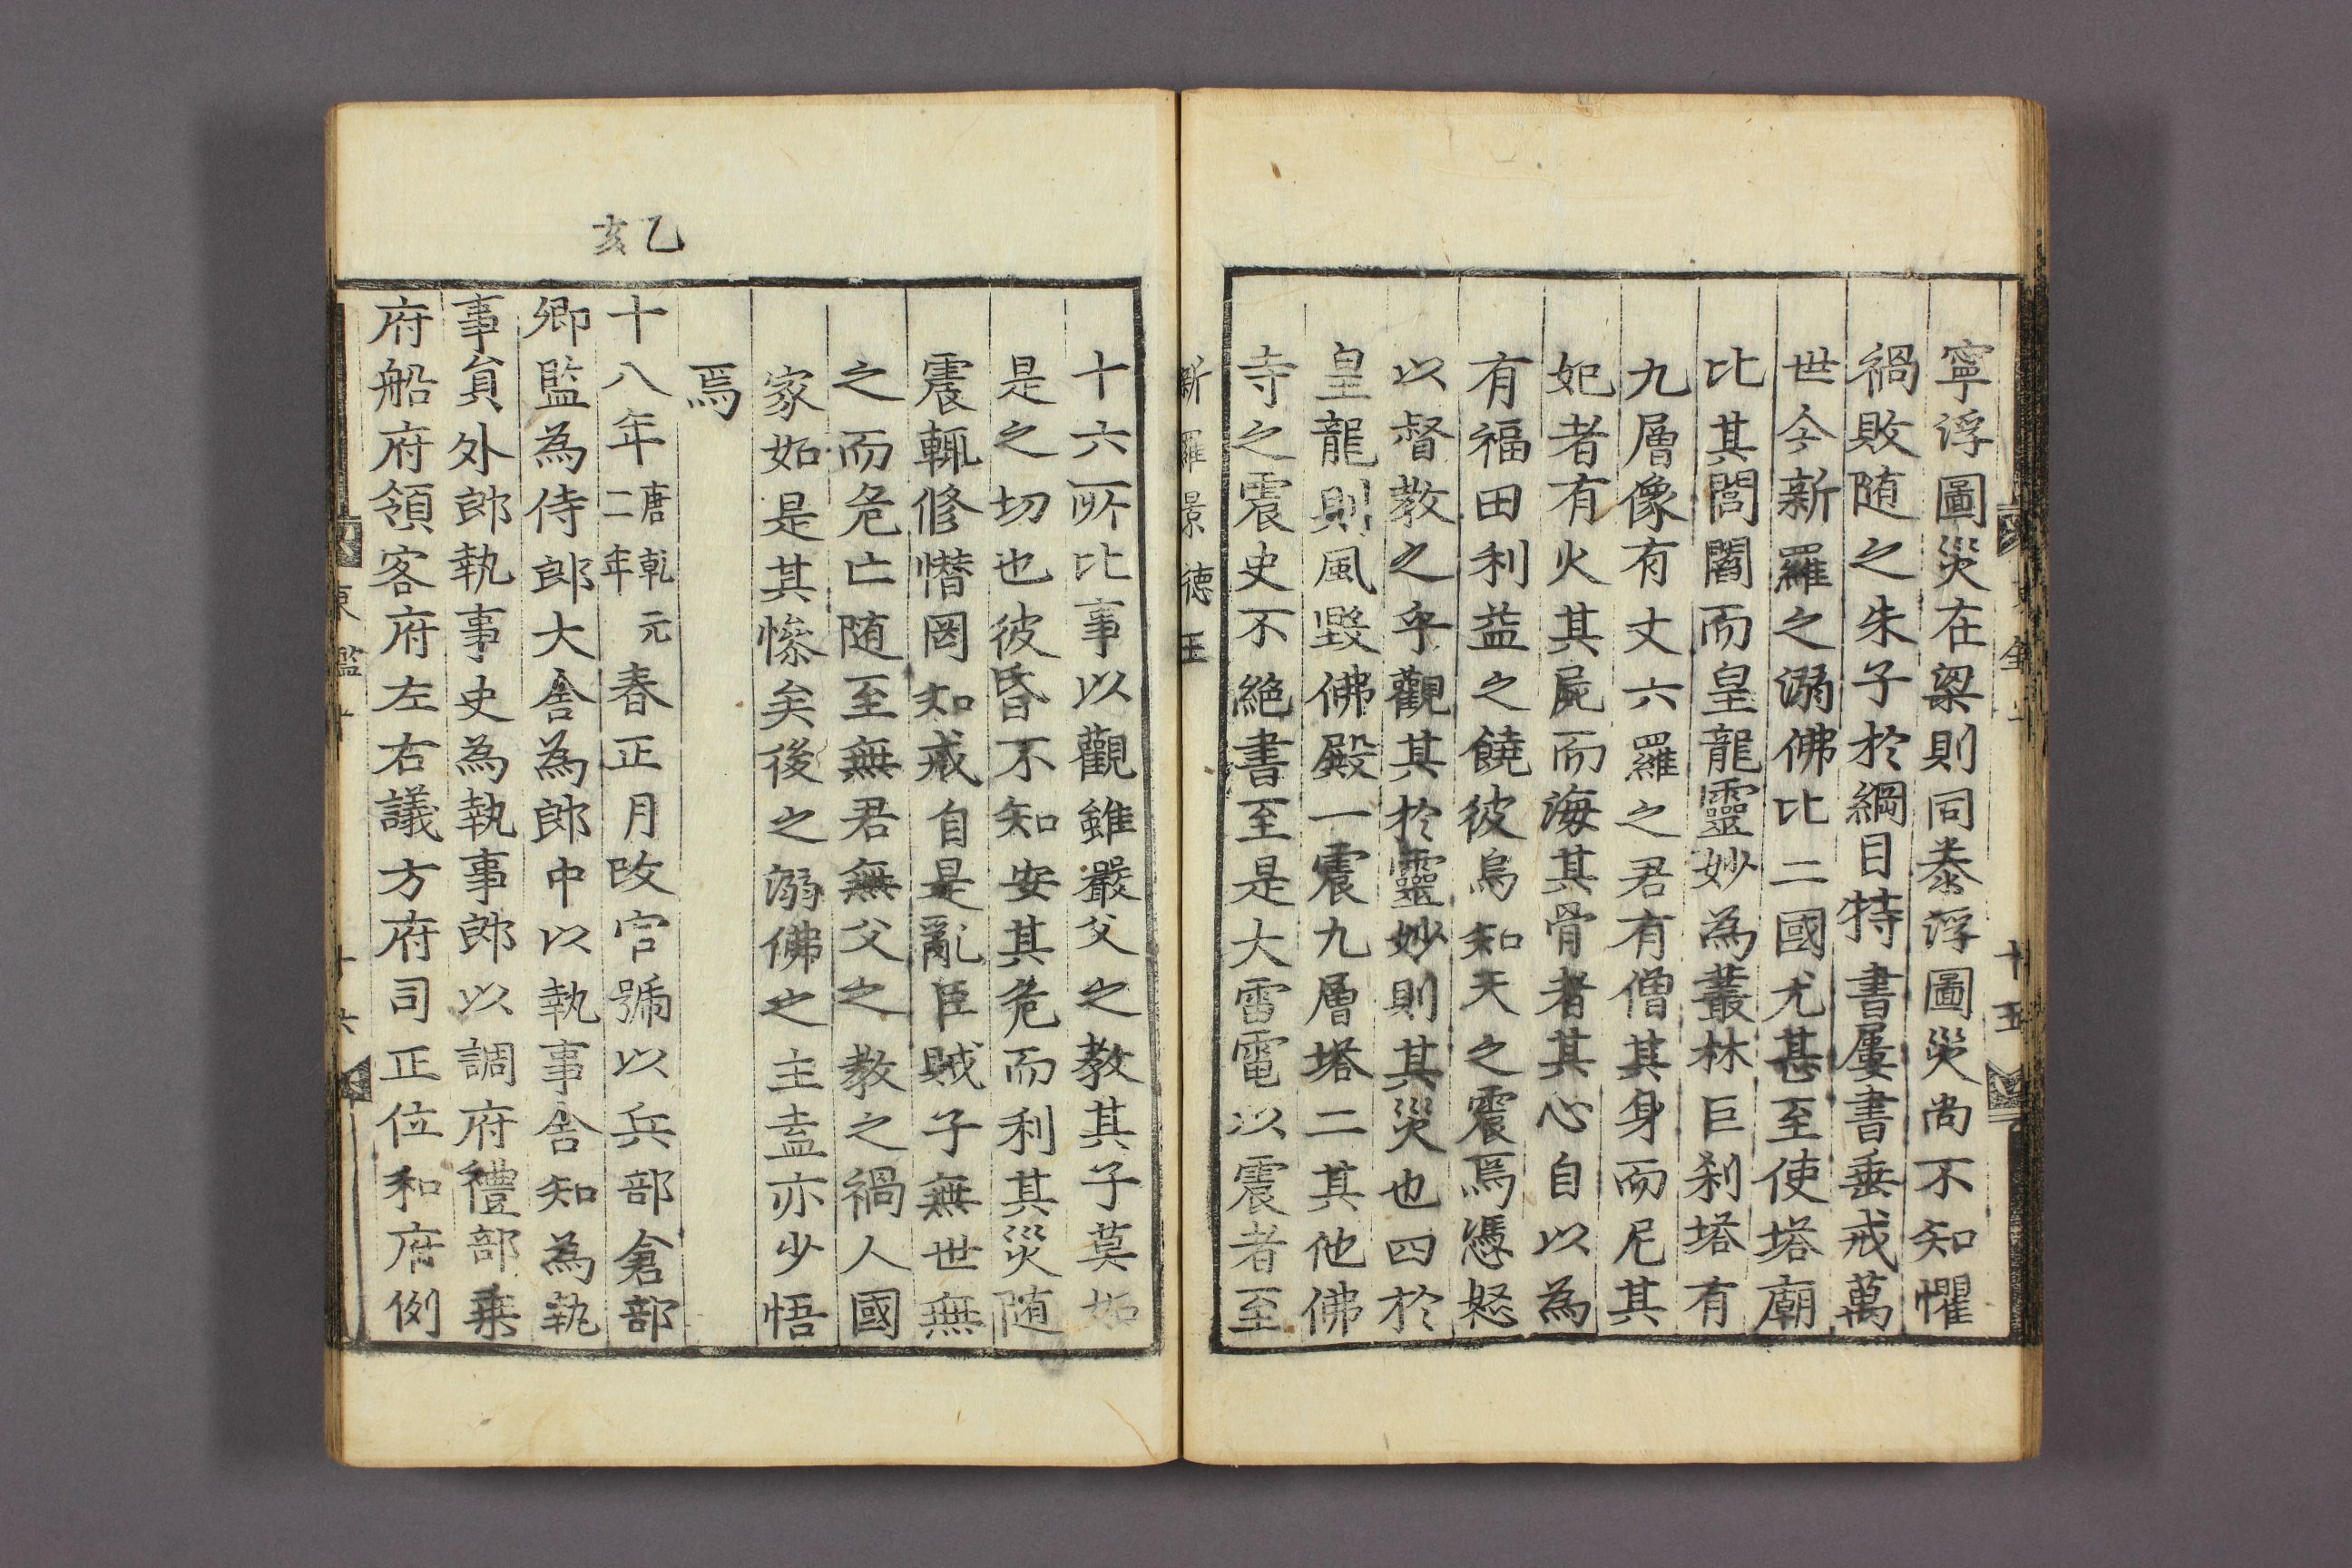 寧浮圖災在梁則同泰浮圖災尚不知懼
禍敗随之朱子於綱目特書屢書垂戒萬
世今新羅之溺佛比二國尤甚至使塔廟
比其閭閻而皇龍靈妙為叢林巨刹塔有
九層像有丈六羅之君有僧其身而尼其
妃者有火其屍而海其骨者其心自以為
有福田利益之饒彼烏知天之震焉憑怒
以督教之乎觀其於靈妙則其災也四於
皇龍則風毀佛殿一震九層塔二其他佛
寺之震史不絕書至是大雷電以震者至
新羅景德王
十六所比事以觀雖嚴父之教其子莫如
是之切也彼昏不知安其危而利其災随
震輒修憯罔知戒自是亂臣賊子無世無
之而危亡随至無君無父之教之禍人國
家如是其慘矣後之溺佛之主盍亦少悟
焉
乙亥
十八年唐乾元二年春正月改官號以兵部倉部
卿監為侍郎大舍為郎中以執事舍知為執
事員外郎執事史為執事郎以調府禮部乗
府船府領客府左右議方府司正位和府例